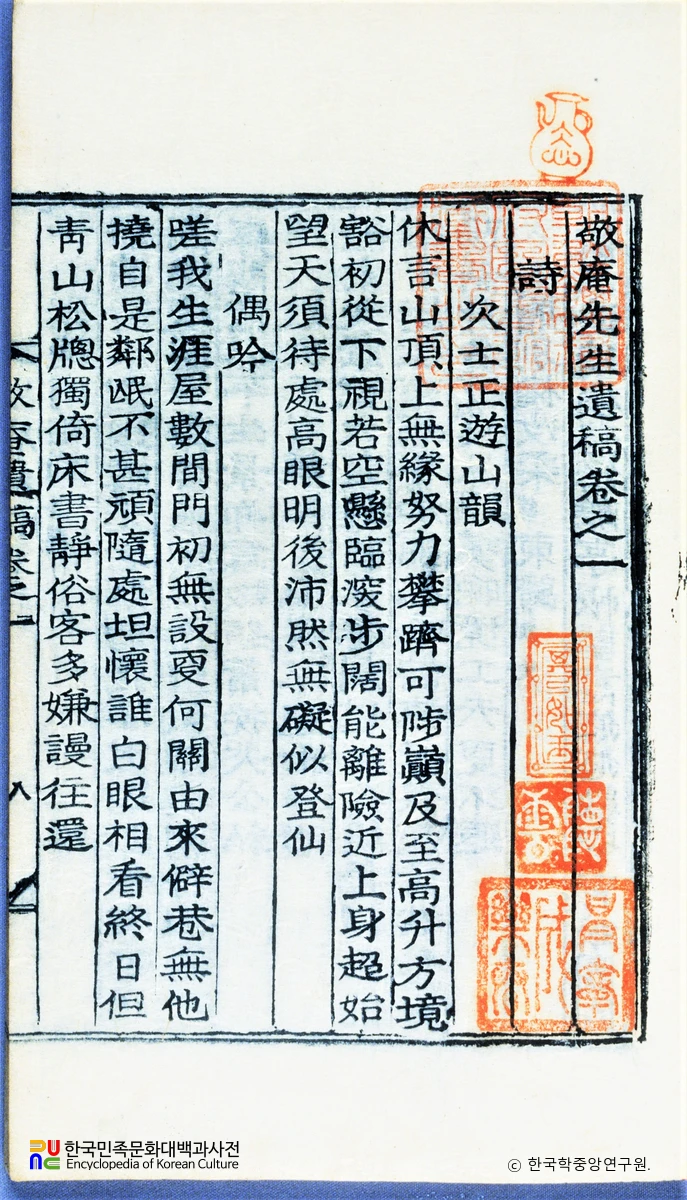 敬庵先生遺稿卷之一
詩
次士正遊山韻
休言山頂上無緣努力攀躋可陟巓及至高升方境
豁初從下視若空懸臨深步闊能離險近上身超始
望天須待處高眼明後沛然無礙似登仙
偶吟
嗟我生涯屋數間門初無設叓何關由來僻巷無他
撓自是鄰岷不甚頑隨處坦懷誰白眼相看終日但
靑山松牕獨倚床書靜俗客多嫌謾往還
敬庵遺稿卷之一
한국민족문화대백과사전
Encyclopedia of Korean Culture
ⓒ 한국학중앙연구원.